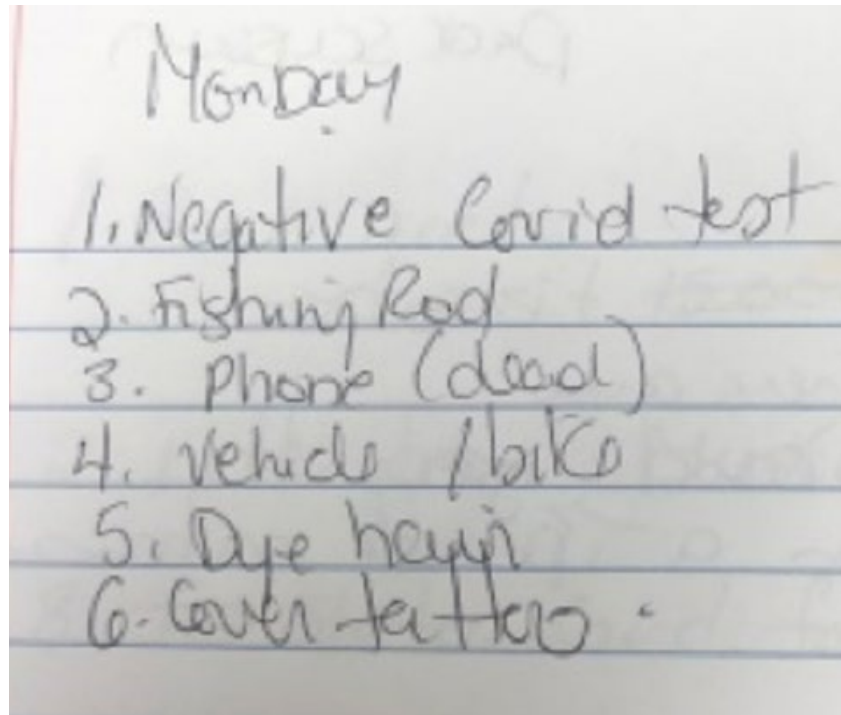 Monday
1. Negative Covid test
2. Fishing Rod
3. Phone (dead)
4. vehicle / bike
5. Dye hair
6. Cover tattoo.